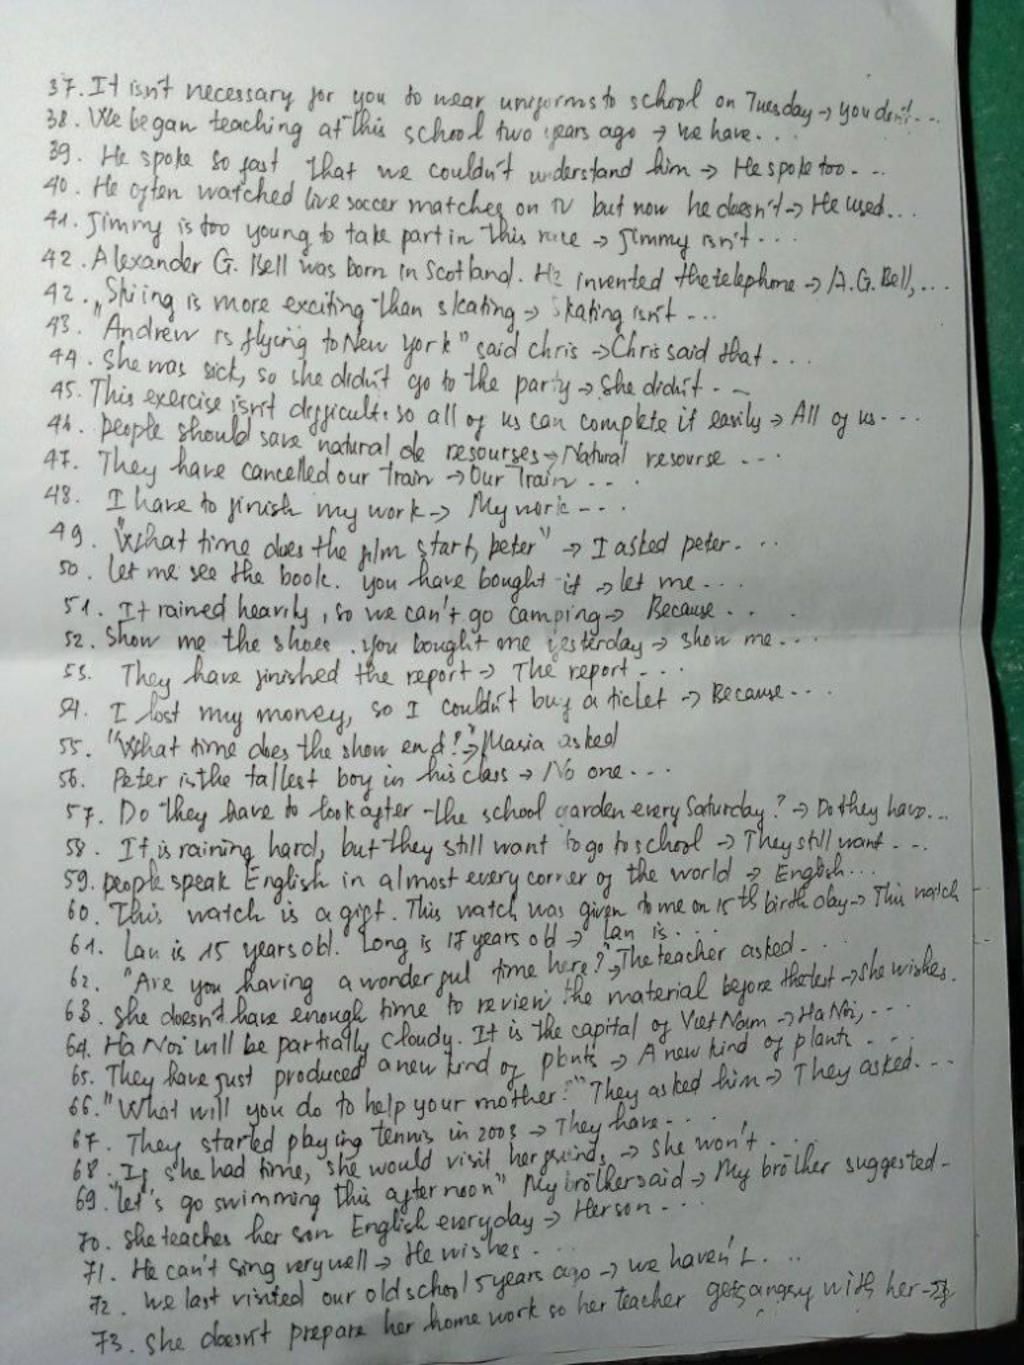 37. It isn't necessary for you to wear uniforms to school on Tuesday → you don't...
38. We began teaching at this school two years ago → we have...
39. He spoke so fast that we couldn't understand him → He spoke too...
40. He often watched live soccer matches on TV but now he doesn't → He used...
41. Jimmy is too young to take part in this race → Jimmy isn't...
42. Alexander G. Bell was born in Scotland. He invented the telephone → A.G. Bell,...
42. Skiing is more exciting than skating → Skating isn't...
43. "Andrew is flying to New York" said chris → Chris said that...
44. She was sick, so she didn't go to the party → She didn't...
45. This exercise isn't difficult. so all of us can complete it easily → All of us...
46. people should save natural de resourses → Natural resourse...
47. They have cancelled our train → Our train...
48. I have to finish my work → My work...
49. "What time does the film start, peter" → I asked peter...
50. let me see the book. you have bought it → let me...
51. It rained heavily, so we can't go camping → Because...
52. Show me the shoes. you bought me yesterday → show me...
53. They have finished the report → The report...
54. I lost my money, so I couldn't buy a ticket → Because...
55. "What time does the show end?" → Maria asked
56. Peter is the tallest boy in his class → No one...
57. Do they have to look after the school garden every Saturday? → Do they have...
58. It is raining hard, but they still want to go to school → They still want...
59. people speak English in almost every corner of the world → English...
60. This watch is a gift. This watch was given to me on 15th birthday → This watch
61. Lan is 15 years old. Long is 17 years old → Lan is...
62. "Are you having a wonderful time here?" → The teacher asked...
63. She doesn't have enough time to review the material before the test → she wishes.
64. Ha Noi will be partially cloudy. It is the capital of Viet Nam → Ha Noi,...
65. They have just produced a new kind of plants → A new kind of plants...
66. "What will you do to help your mother?" They asked him → They asked...
67. They started playing tennis in 2003 → They have...
68. If she had time, she would visit her friends → she won't...
69. "let's go swimming this afternoon" My brother said → My brother suggested-
70. she teaches her son English everyday → Her son...
71. He can't sing very well → He wishes...
72. we last visited our old school 5 years ago → we haven't...
73. she doesn't prepare her home work so her teacher gets angry with her →